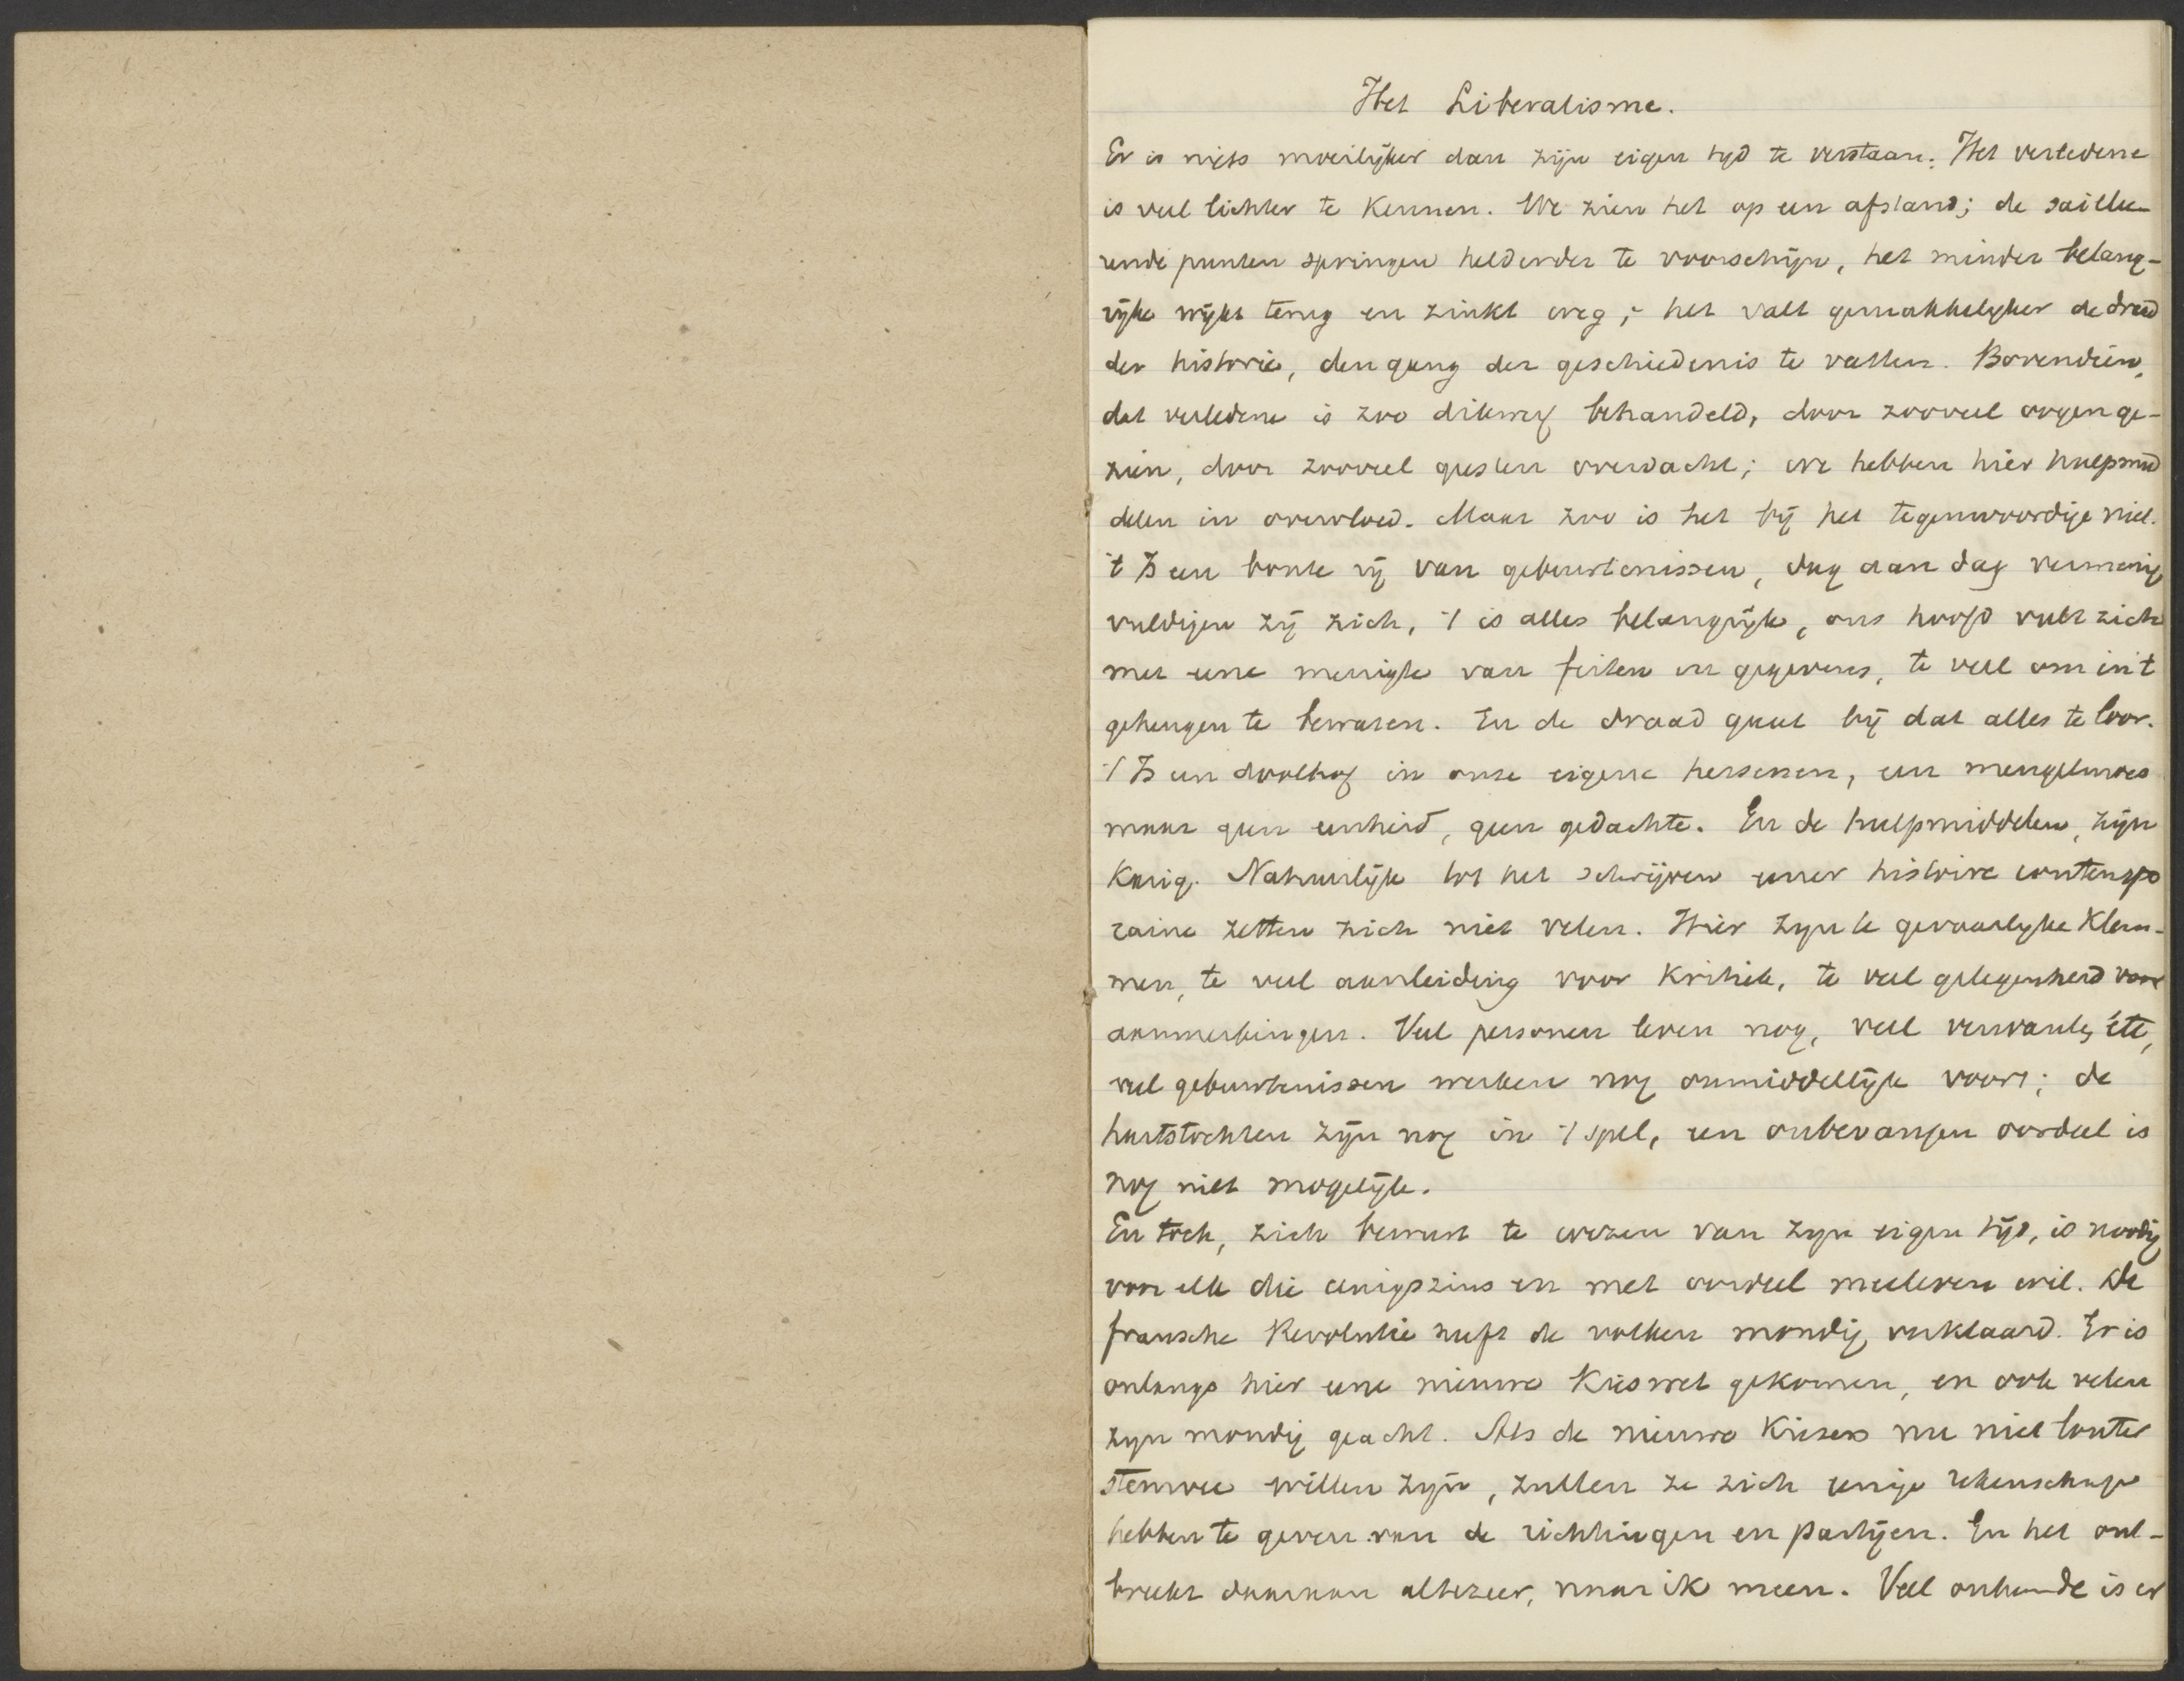 Het Liberalisme.
Er is niets moeilijker dan zijn eigen tijd te verstaan. Het verledene
is veel lichter te kennen. We zien het op een afstand; de saillee-
rende punten springen helderder te voorschijn, het minder belang-
rijke wijkt terug en zinkt weg; het valt gemakkelijker de draad
der historie, den gang der geschiedenis te vatten. Bovendien,
dat verledene is zoo dikwerf behandeld, door zooveel oogen ge-
zien, door zooveel geesten overdacht; we hebben hier hulpmid
delen in overvloed. Maar zoo is het bij het tegenwoordige niet.
't Is een bonte rij van gebeurtenissen, dag aan dag vermenig
vuldigen zij zich, 't is alles belangrijk, ons hoofd vult zich
met eene menigte van feiten en gegevens, te veel om in 't
geheugen te bewaren. En de draad gaat bij dat alles te loor.
't Is een doolhof in onze eigene hersenen, een mengelmoes
maar geen eenheid, geen gedachte. En de hulpmiddelen zijn
karig. Natuurlijk tot het schrijven eener histoire contempo
raine zetten zich niet velen. Hier zijn te gevaarlijke klem-
men, te veel aanleiding voor kritiek, te veel gelegenheid voor
aanmerkingen. Veel personen leven nog, veel verwanten, etc,
veel gebeurtenissen werken nog onmiddellijk voort; de
hartstochten zijn nog in 't spel, een onbevangen oordeel is
nog niet mogelijk.
En toch, zich bewust te wezen van zijn eigen tijd, is noodig
voor elk die eenigszins en met oordeel meeleven wil. De
fransche Revolutie heeft de volken mondig verklaard. Er is
onlangs hier eene nieuwe Kieswet gekomen, en ook velen
zijn mondig geacht. Als de nieuwe Kiezers nu niet louter
stemvee willen zijn, zullen ze zich eenige rekenschap
hebben te geven van de richtingen en partijen. En het ont-
breekt daaraan altezeer, naar ik meen. Veel onkunde is er